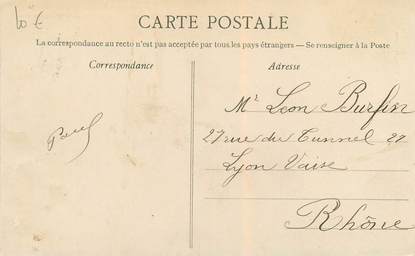 10 €
CARTE POSTALE
La correspondance au recto n'est pas acceptée par tous les pays étrangers — Se renseigner à la Poste
Correspondance
Adresse
Mr Léon Burfin
27 rue du Tunnel 27
Lyon Vaise
Rhône
Paul